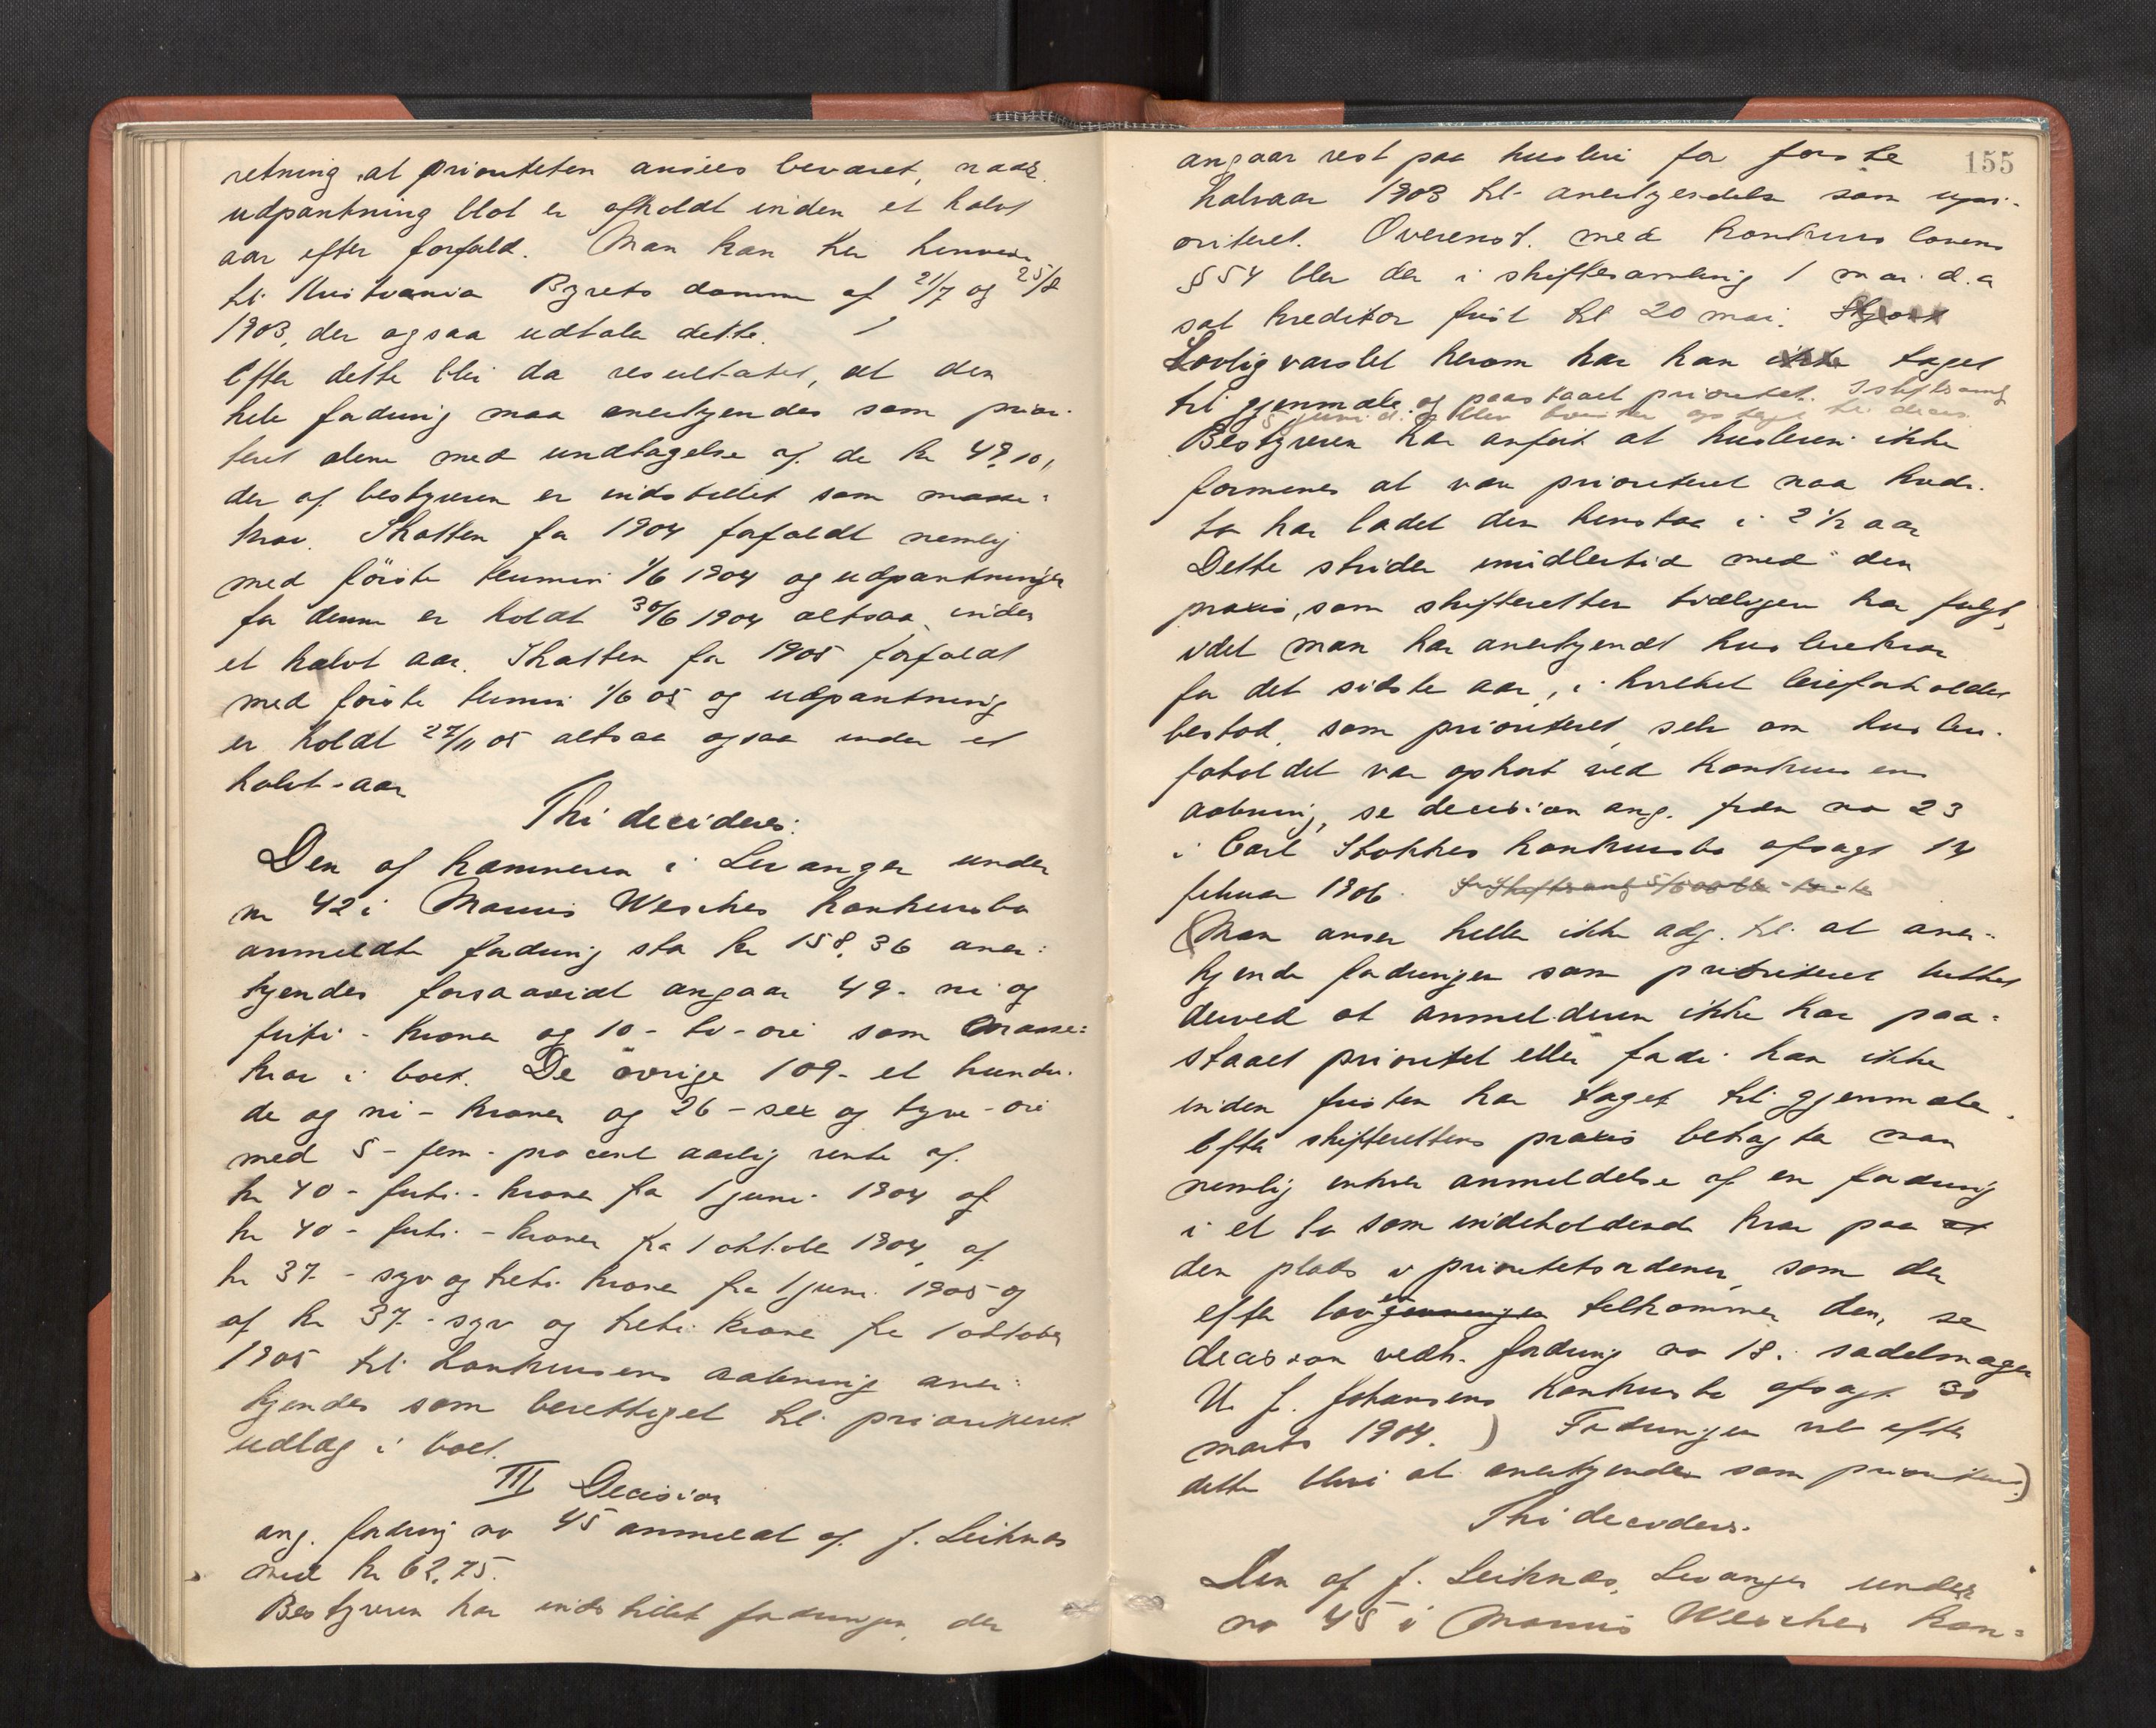 retning, at prioriteten ansees bevaret, naar
udpantning blot er afholdt inden et halvt
aar efter forfald. Man kan her henvise
til Kristiania Byrets domme af 21/7 og 25/8
1903, der ogsaa udtaler dette.
Efter dette blir da resultatet, at den
hele fordring maa anerkjendes som priori-
teret alene med undtagelse af de kr 49,10,
der af bestyreren er indstillet som masse-
krav. Skatten for 1904 forfaldt nemlig
med første termin 1/6 1904 og udpantninger
for denne er holdt 30/6 1904 altsaa inden
et halvt aar. Skatten for 1905 forfaldt
med første termin 1/6 05 og udpantning
er holdt 27/11 05 altsaa ogsaa inden et
halvt-aar
Thi decideres:
Den af kæmneren i Levanger under
no 42 i Marius Wesches konkursbo
anmeldte fordring stor kr 158,36 aner-
kjendes forsaavidt angaar 49- ni og
firti - kroner og 10 - ti - øre som masse-
krav i boet. De øvrige 109- et hundre-
de og ni - kroner og 26 - sex og tyve - øre
med 5 - fem - procent aarlig rente af
kr 40 - firti - kroner fra 1 juni 1904 af
kr 40 - firti - kroner fra 1 oktober 1904, af
kr 37 - syv og treti kroner fra 1 juni 1905 og
af kr 37 - syv og treti kroner fra 1 oktober
1905 til konkursens aabning aner-
kjendes som berettiget til prioriteret
udlæg i boet.
III Decision
ang. fordring no 45 anmeldt af J. Leiknes
med kr 62,75.
Bestyreren har indstillet fordringen, der
155
angaar rest paa husleie for første
halvaar 1903 til anerkjendelse som upri-
oriteret. Overenst. med konkurslovens
§ 54 blev der i skiftesamling 1 mai d.a
sat kreditor frist til 20 mai.
Lovlig varslet herom har han ikke taget
til gjenmæle og paastaaet prioritet. I skiftesaml
5 juni d.a blev tvisten optaget til decis.
Bestyreren har anført at husleien ikke
formenes at være prioriteret naar kredi-
tor har ladet den henstaa i 2 1/2 aar
Dette strider imidlertid med den
praxis, som skifteretten tidligere har fulgt,
idet man har anerkjendt husleiekrav
for det sidste aar, i hvilket leieforholdet
bestod, som prioriteret, selv om husleie-
forholdet var ophørt ved konkursens
aabning, se decision ang. fordr no 23
i Carl Stokkes konkursbo afsagt 14
februar 1906.
(Man anser heller ikke adg. til at aner-
kjende fordringen som prioriteret lukket
derved at anmelderen ikke har paa-
staaet prioritet eller fordi han ikke
inden fristen har taget til gjenmæle.
Efter skifterettens praxis betragter man
nemlig enhver anmeldelse af en fordring
i et bo som indeholdende krav paa at
den plads i prioritetsordenen, som der
efter loven tilkommer den, se
decision vedk. fordring no 18 i sadelmager
U. J. Johansens konkursbo afsagt 30
marts 1904.) Fordringen vil efter
dette blive at anerkjende som prioriteret)
Thi decideres:
Den af J. Leiknes, Levanger under
no 45 i Marius Wesches kon-